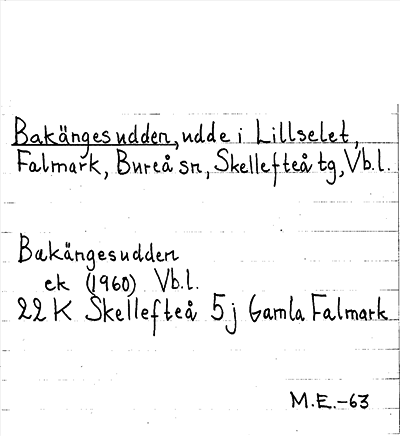 Bakängesudden, udde i Lillselet,
Falmark, Bureå sn, Skellefteå tg, Vb.l.
Bakängesudden
ek (1960) Vb.l.
22 K Skellefteå 5 j Gamla Falmark
M.E.-63